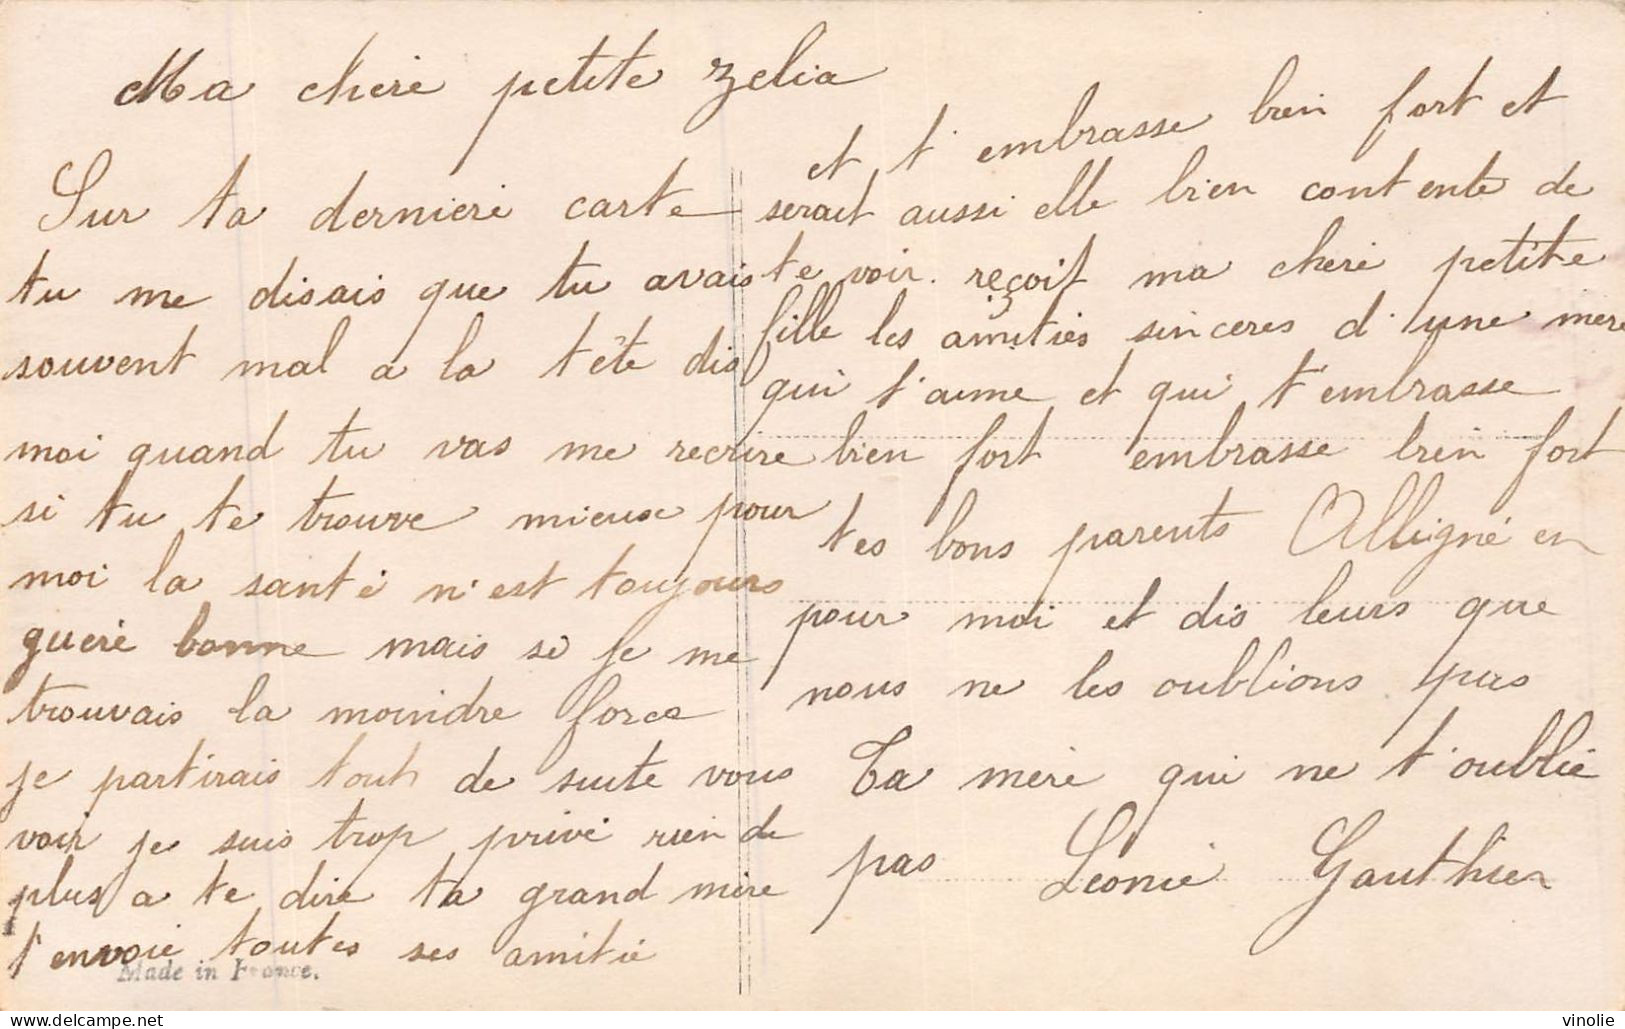 Ma chere petite Zelia
Sur ta derniere carte
tu me disais que tu avais
souvent mal a la tête dis
moi quand tu vas me recrire
si tu te trouve mieux pour
moi la santé n'est toujours
gueré bonne mais si je me
trouvais la moindre force
je partirais tout de suite vous
voir je suis trop privé rien de
plus a te dire ta grand mère
t'envoie toutes ses amitié
Made in France.
et t'embrasse bien fort et
serait aussi elle bien contente de
te voir. reçoit ma cheré petite
fille les amitiés sinceres d'une mere
qui t'aime et qui t'embrasse
bien fort embrasse bien fort
tes bons parents Alligné en
pour moi et dis leurs que
nous ne les oublions pas
Ta meré qui ne t'oublie
pas Léonie Gauthier
vinolie